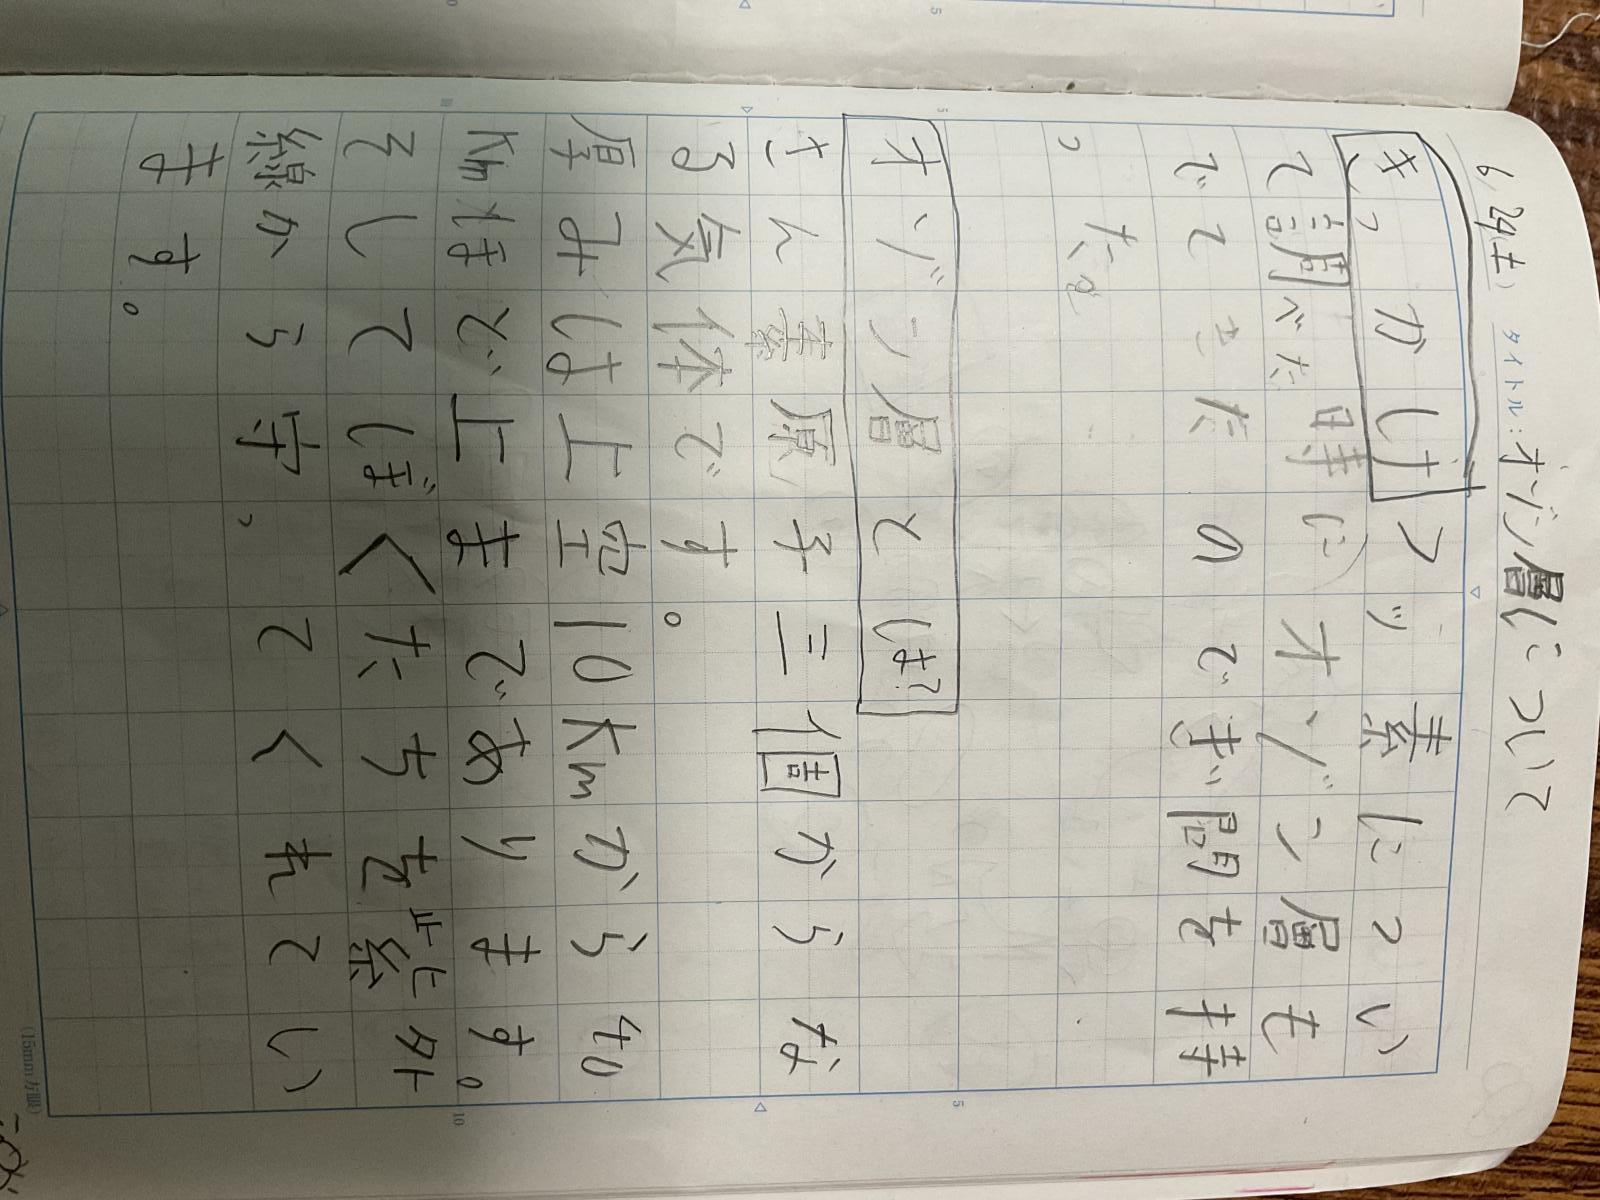 6,24土) タイトル:オゾン層について
きっかけ フッ素につい
て調べた時にオゾン層も
でてきたのでぎ問を持
った。
オゾン層とは?
さん素原子三個からな
る気体です。
厚みは上空10kmから40
kmほど上まであります。
そしてぼくたちを紫外
線から守ってくれてい
ます。
5
10
(15mm方眼)